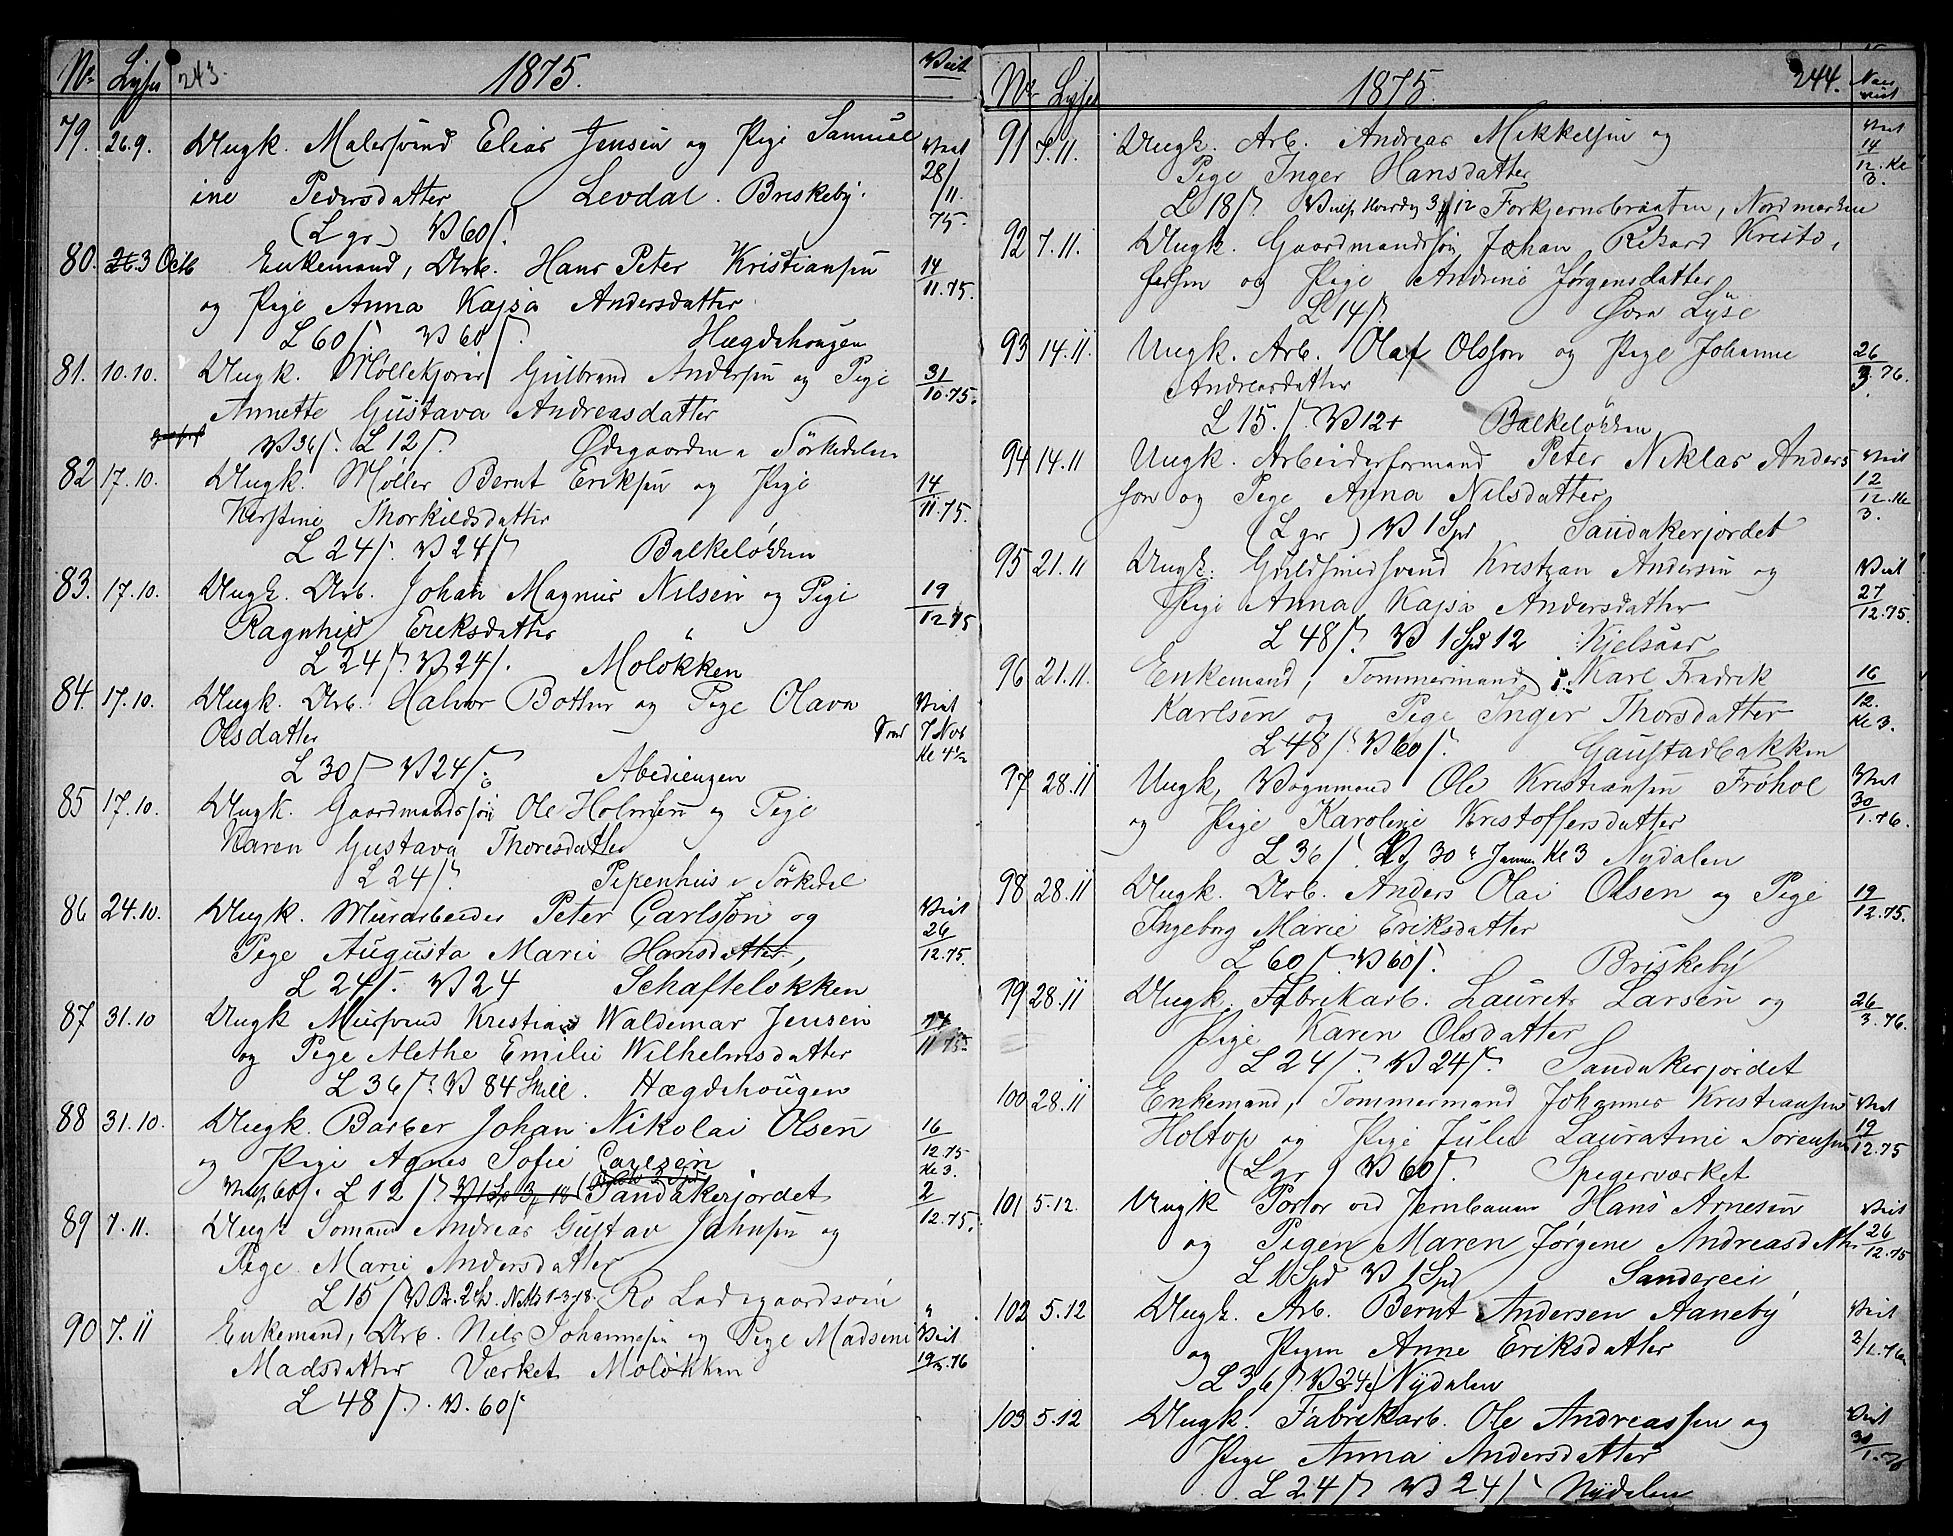 Nr Lyses 243. 1875. Viet
79. 26.9. Ungk. Malersvend Elias Jensen og Pige Samuel Viet
ine Pedersdatter Levdal. Briskeby. 28/11.
(L gr.) V 60 ſ. 75.
80. 26 3 Octb Enkemand, Arb. Hans Peter Kristiansen 14
og Pige Anna Kajsa Andersdatter 11.75.
L 60 ſ. V 60 ſ. Hægdehougen
81. 10.10. Ungk. Møllekjører Gulbrand Andersen og Pige 31
Annette Gustava Andreasdatter 10.75.
V 36 ſ. L 12 ſ. Ødegaarden i Sörkedalen
82 17.10. Ungk. Møller Bernt Eriksen og Pige 14
Kerstine Thorkildsdatter 11.75.
L 24 ſ. V 24 ſ Balkelökken
83. 17.10. Ungk. Arb. Johan Magnus Nilsen og Pige 19
Ragnhild Eriksdatter 12 75
L 24 ſ. V 24 ſ. Molökken
84. 17.10. Ungk. Arb. Halvor Botten og Pige Olava Viet
Olsdatter 7 Nov
L 30 ſ V 24 ſ. Abediengen Kl 4½
85 17.10. Ungk. Gaardmandssøn Ole Holmsen og Pige
Karen Gustava Thoresdatter
L 24 ſ. Pipenhus i Sörkedal
86 24.10. Ungk. Murarbeider Peter Carlsson og Viet
Pige Augusta Marie Hansdatter, 26
L 24 ſ. V 24 Schafteløkken 12.75.
87 31.10 Ungk Mursvend Kristian Waldemar Jensen 14
og Pige Alethe Emilie Wilhelmsdatter 11 75
L 36 ſ. V 84 Skill. Hægdehougen
88 31.10. Ungk. Barber Johan Nikolai Olsen 16
og Pige Agnes Sofie Carlsen 12.75
Kl 3.
V 60 ſ. L 12 ſ Sandakerjordet 2
89 7.11. Ungk Sømand Andreas Gustav Johnsen og 12.75.
Pige Marie Andersdatter
L 15 ſ V Ro Ladegaardsøen
90 7.11 Enkemand, Arb. Nils Johannesen og Pige Madseni Viet
Madsdatter Værket Moløkken 19 76
L 48 ſ. V. 60 ſ.
Nr Lyses 1875. 244. Naar viet
91 7.11. Ungk. Arb. Andreas Mikkelsen og Viet
Pige Inger Hansdatter 14
12. Kl 3.
L 18 ſ. Forkjernsbraaten, Nordmarken
92 7.11. Ungk. Gaardmandssøn Johan Rikard Kristo,
fersen og Pige Andrine Jørgensdatter
L 14 ſ. Øvre Lyse
93 14.11. Ungk. Arb. Olaf Olsson og Pige Johanne 26
Andreasdatter 3.76.
L 15. ſ. V 12 + Balkelökken
94 14.11 Ungk. Arbeiderformand Peter Niklas Anders Viet
son og Pige Anna Nilsdatter 12
12. Kl 3.
(L gr.) V 1 Spd Sandakerjordet
95 21.11 Ungk. Guldsmedsvend Kristian Andersen og Viet
Pige Anna Kajsa Andersdatter 27
12.75.
L 48 ſ. V 1 Spd 12 Kjelsaas
96 21.11. Enkemand, Tommermand, Karl Fredrik 16
Karlsen og Pige Inger Thorsdatter 12. Kl 3.
L 48 ſ. V 60 ſ. Gaustadbakken
97 28.11 Ungk, Vognmand Ole Kristiansen Fröhol Viet
og Pige Karoline Kristoffersdatter 30
1.76.
L 36 ſ. V 30 Januar Kl 3 Nydalen
98 28.11 Ungk. Arb. Anders Olai Olsen og Pige 19
Ingeborg Marie Eriksdatter 12.75.
L 60 ſ. V 60 ſ. Briskeby
99 28.11 Ungk. Fabrikarb. Laurits Larsen og 26
Pige Karen Olsdatter 3.76.
L 24 ſ. V 24 ſ. Sandakerjordet
100 28.11 Enkemand, Tommermand Johannes Kristiansen Viet
Holtop og Pige Julie Lauratine Sörensen 19
12.75
(L gr.) V 60 ſ. Spegerværket
101 5.12. Ungk Portør ved Jernbanen Hans Arnesen Viet
og Pigen Maren Jørgene Andreasdtter 26
12.75
L 1 Spd V 1 Spd Sandereie
102 5.12 Ungk. Arb. Bernt Andersen Aaneby Viet
og Pigen Anne Eriksdatter 2/1.76
L 36 ſ. V 24 ſ Nydalen
103 5.12 Ungk. Fabrikarb. Ole Andreassen og Viet
Pige Anna Andersdatter 30
1.76
L 24 ſ V 24 ſ Nydalen